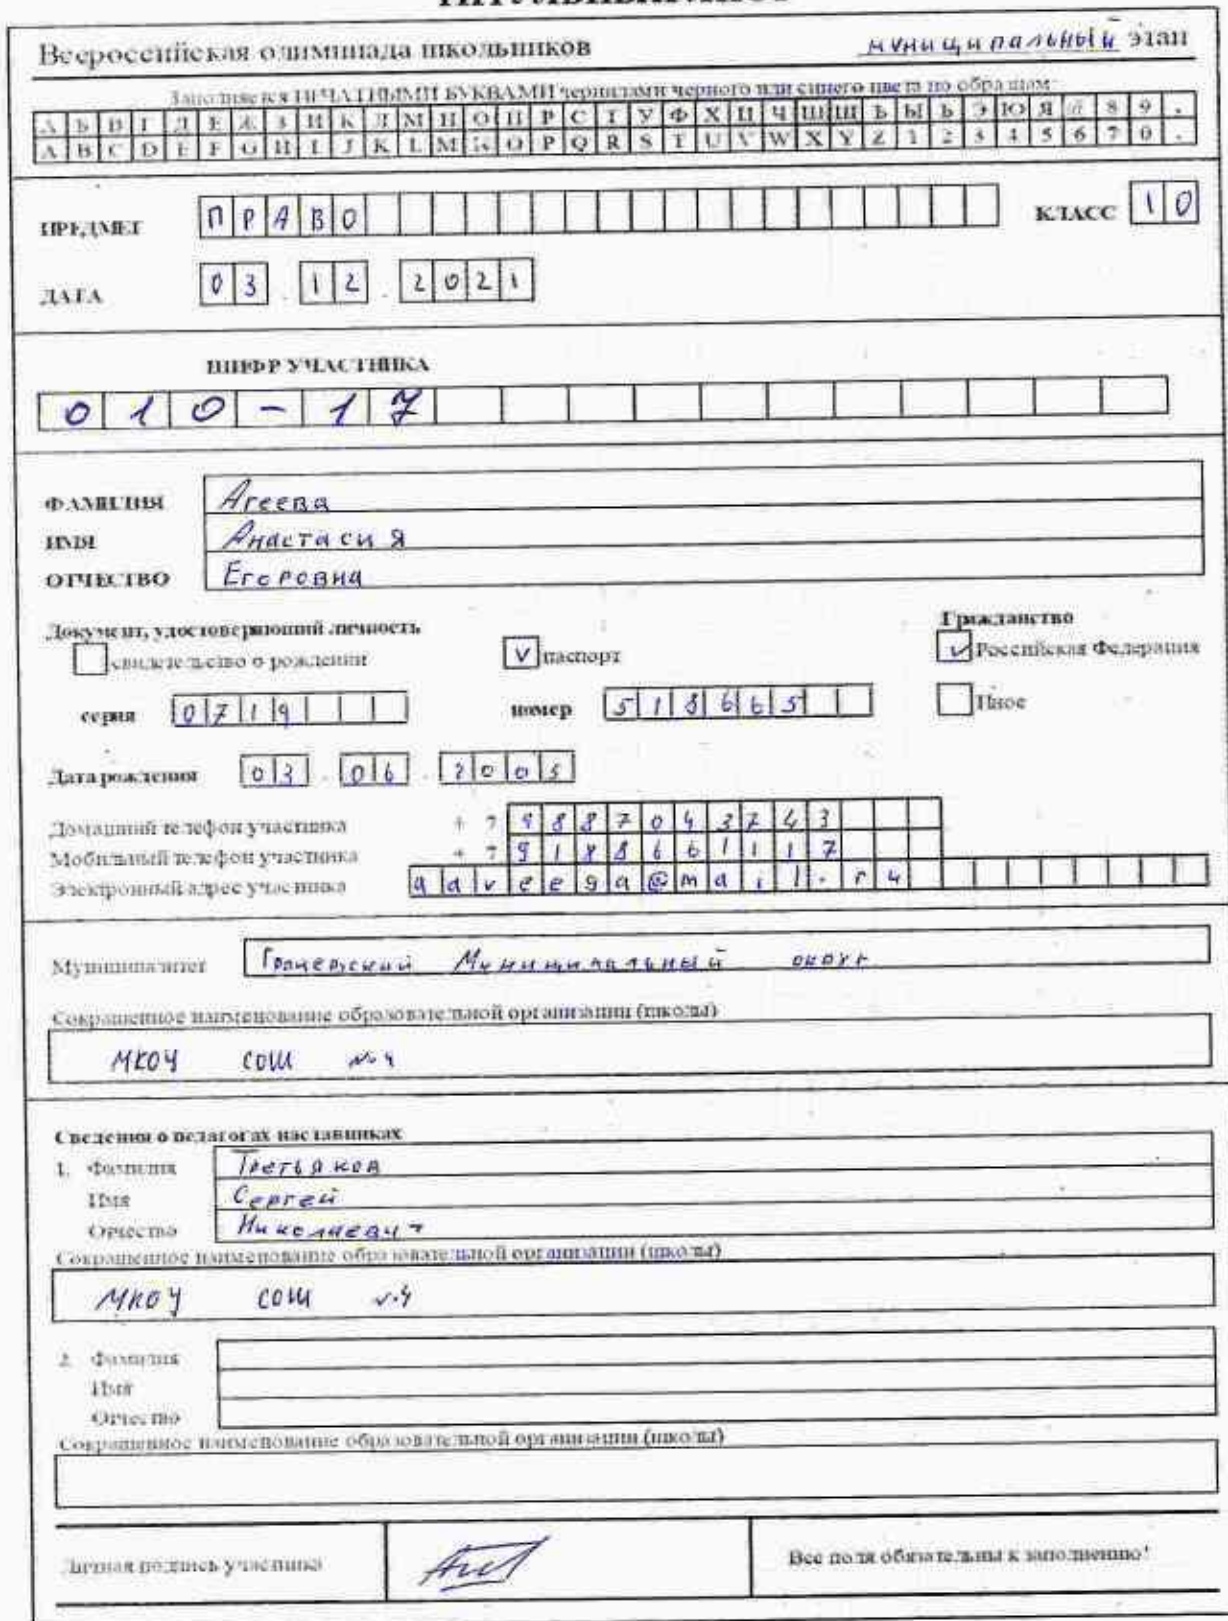 Всероссийская олимпиада школьников муниципальный этап
Заполняется ПЕЧАТНЫМИ БУКВАМИ чернилами черного или синего цвета по образцам:
А Б В Г Д Е Ж З И К Л М Н О П Р С Т У Ф Х Ц Ч Ш Щ Ъ Ы Ь Э Ю Я @ 8 9 .
A B C D E F G H I J K L M N O P Q R S T U V W X Y Z 1 2 3 4 5 6 7 0 .
ПРЕДМЕТ ПРАВО КЛАСС 10
ДАТА 03.12.2021
ШИФР УЧАСТНИКА
010-17
ФАМИЛИЯ Агеева
ИМЯ Анастасия
ОТЧЕСТВО Егоровна
Документ, удостоверяющий личность Гражданство
свидетельство о рождении V паспорт V Российская Федерация
серия 0719 номер 518665 Иное
Дата рождения 03.06.2005
Домашний телефон участника +7 9887043743
Мобильный телефон участника +7 9188661117
Электронный адрес участника
Муниципалитет Грачевский Муниципальный округ
Сокращенное наименование образовательной организации (школы)
МКОУ СОШ №4
Сведения о педагогах наставниках
1. Фамилия Третьяков
Имя Сергей
Отчество Николаевич
Сокращенное наименование образовательной организации (школы)
МКОУ СОШ №4
2. Фамилия
Имя
Отчество
Сокращенное наименование образовательной организации (школы)
Личная подпись участника Все поля обязательны к заполнению!